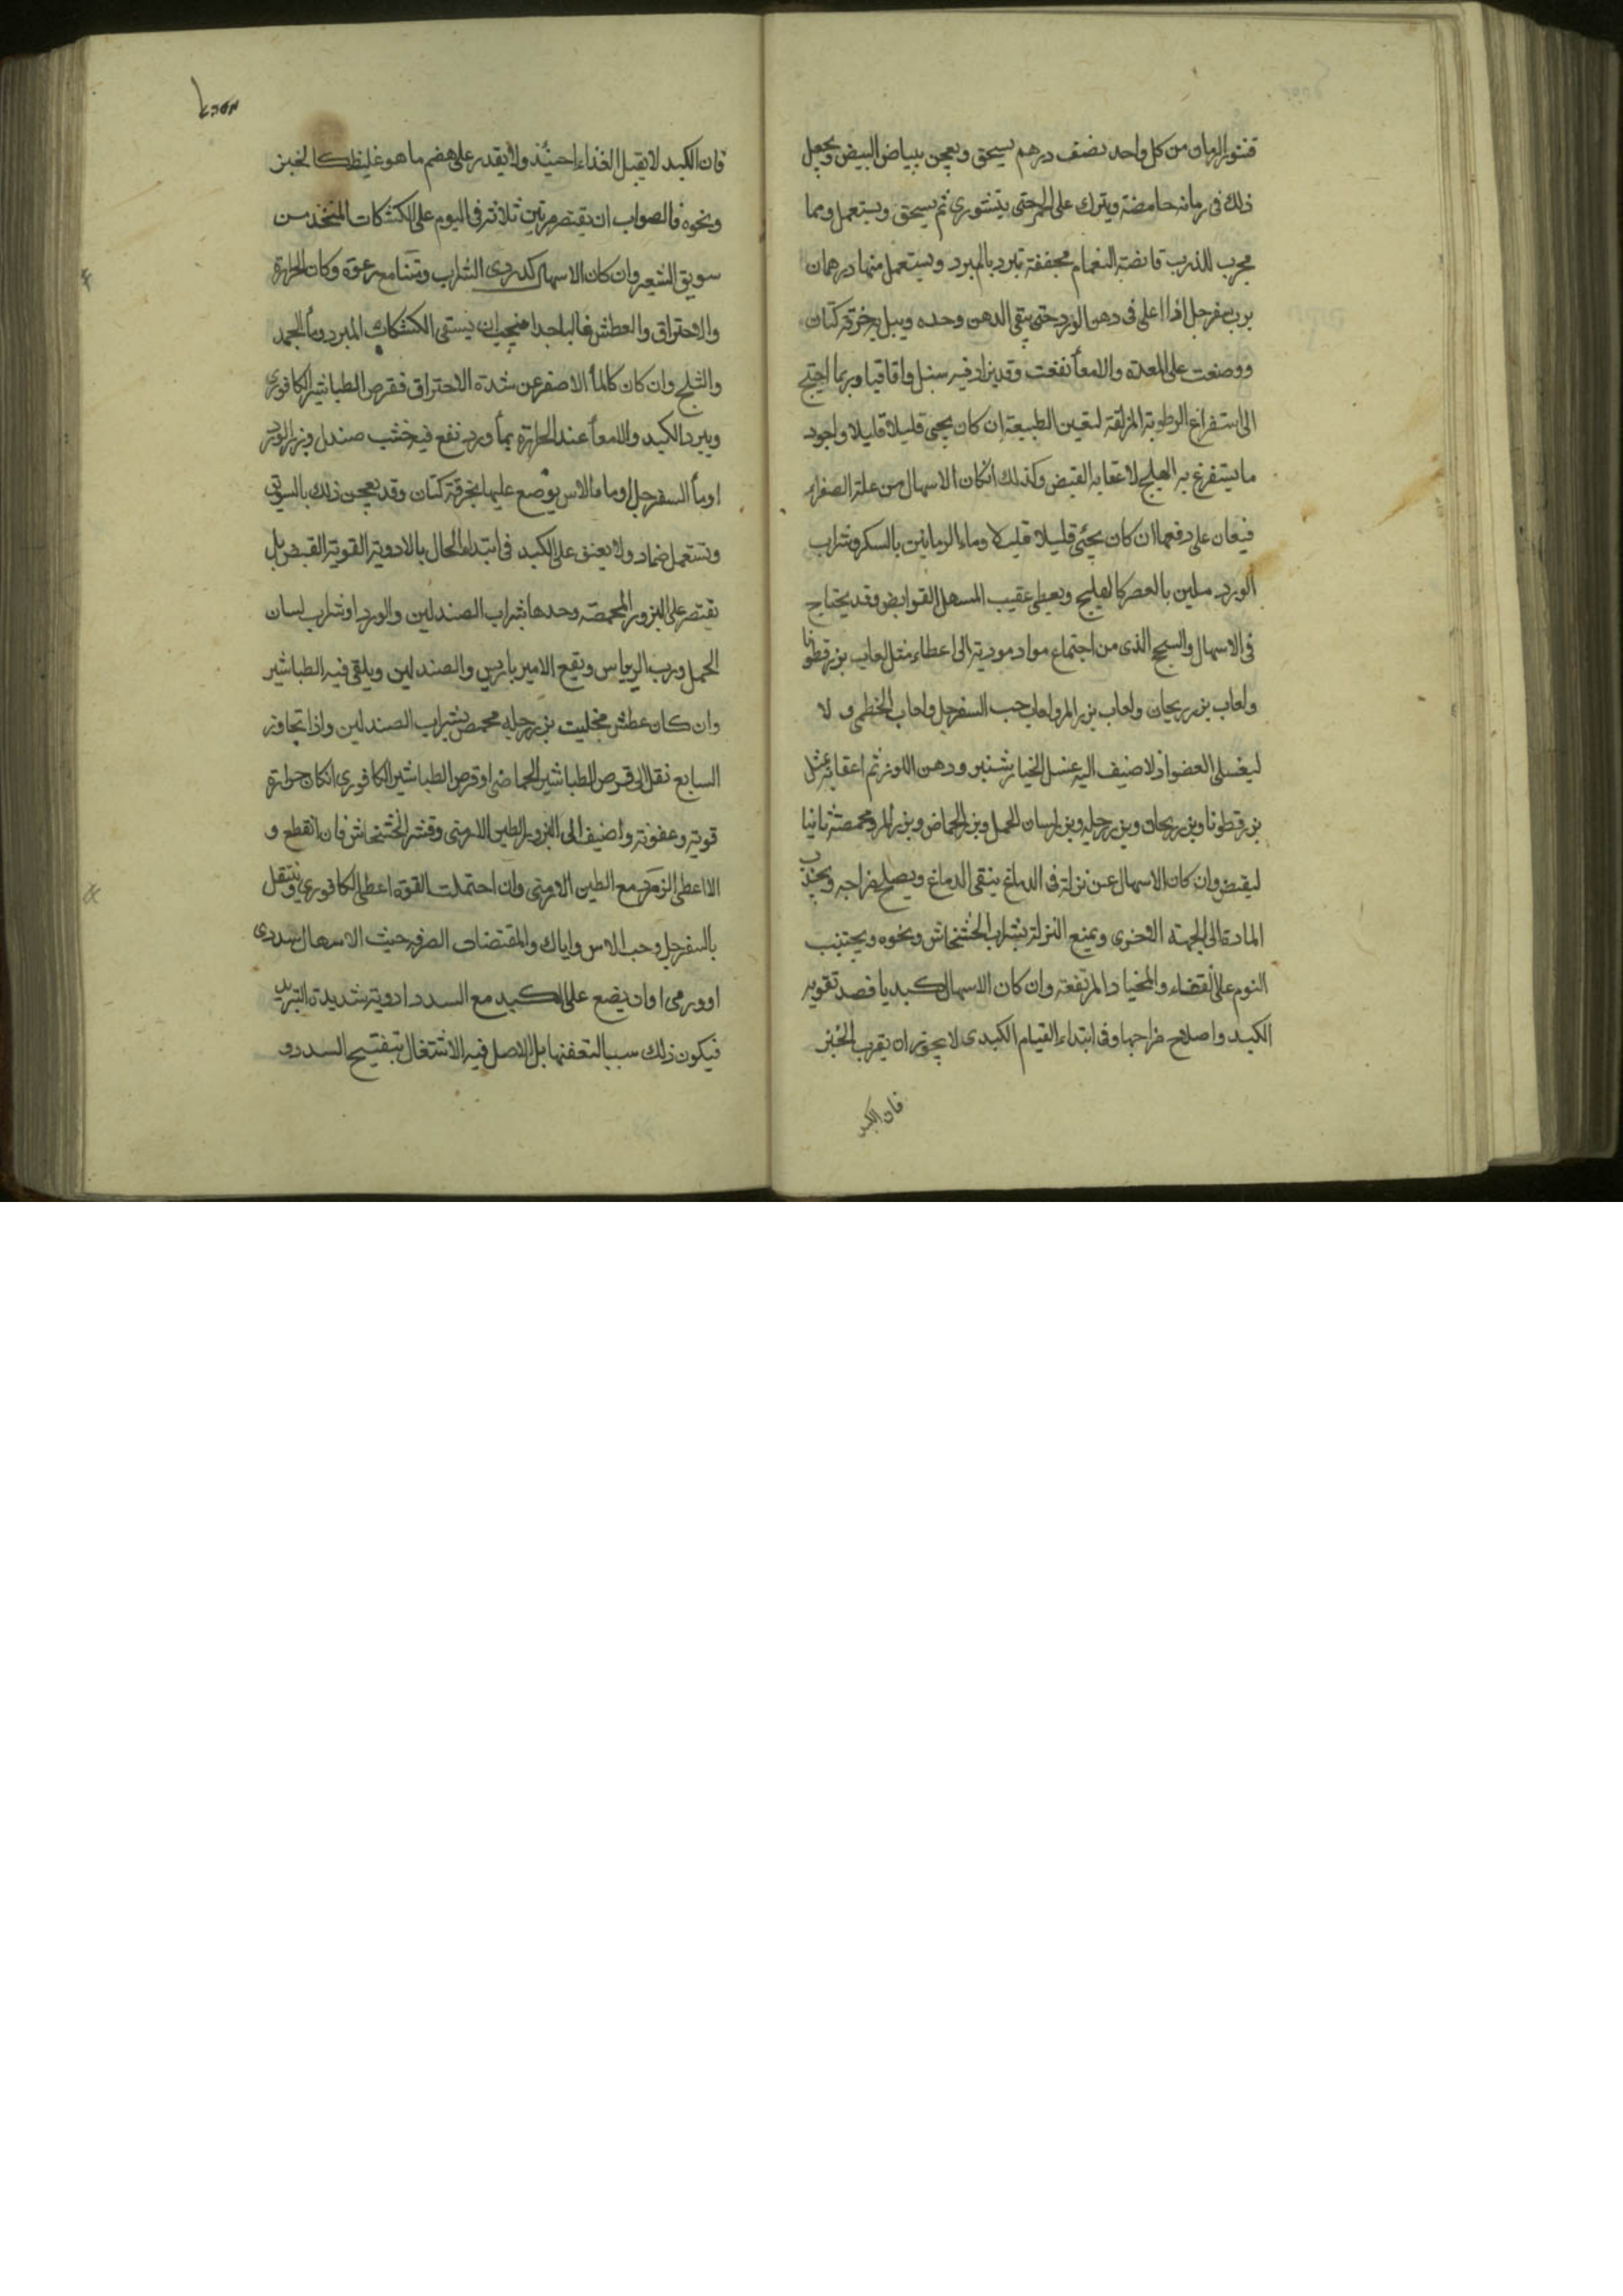 قشور الرمان من كل واحد نصف درهم يسحق ويعجن ببياض البيض ويجعل
ذلك فى رمانه حامضة ويترك على الجمر حتى يتشوي ثم يسحق ويستعمل ومما
مجرب للذرب قانضة النعام مجففة تبرد بالمبرد ويستعمل منها درهمان
برب سفرجل اذا اغلى فى دهن الورد حتى يبقى الدهن وحده ويبل به خرقة كتان
ووضعت على المعدة والامعأ نفعت وقد يزاد فيه سنبل واقاقيا وربما احتيج
الى استفراغ الرطوبة المزلقة لتعين الطبيعة ان كان يجى قليلا قليلا واجود
ما يستفرغ به الهليلج لاعقابه القبض وكذلك انكان الاسهال من علة الصفراء
فيعان على دفعها ان كان يجئ قليلا قليلا وماء الرمانين بالسكر وشراب
الورد ملين بالعصر كالهليلج ويعطى عقيب المسهل القوابض وقد يحتاج
فى الاسهال والسحج الذى من اجتماع مواد موذية الى اعطاء مثل لعاب بزر قطونا
ولعاب بزر ريحان ولعاب بزر المرو ولعاب حب السفرجل ولعاب الخطمى و لا
ليغسل العضو اولا ضيف اليه عسل الخيار شنبر ودهن اللوز ثم اعقابه بمثل
بزر قطونا وبزر ريحان وبزر رجله وبزر لسان الحمل وبزر الحماض وبزر المرو محمصة ثانيا
ليقبض وان كان الاسهال عن نزلة فى الدماغ ينقى الدماغ ويصلح مزاجه ويجذب
المادة الى الجهة الاخرى ويمنع النزلة بشراب الخشخاش ونحوه ويجتنب
النوم على القفاء والمخياد المرتفعة وان كان الاسهال كبديا فصد تقويه
الكبد واصلاح مزاجها وفى ابتداء القيام الكبدى لا يجوز ان يقرب الخبز
فان الكبد
فان الكبد لا يقبل الغذاء احينئذ ولا يقدر على هضم ما هو غليظ كالخبز
ونحوه فالصواب ان يقتصر مرتين ثلاثة فى اليوم على الكشكات المتخذ من
سويق الشعير وان كان الاسهال كدردى الشراب ومتنا مع رغوة وكان الحرارة
والاحتراق والعطش غالبا جدا فيجب ان يستقى الكشكات المبرد وماء الجمد
والثلج وان كان كالماء الاصفر عن شدة الاحتراق فقرص الطباشير الكافورى
ويبرد الكبد والامعأ عند الحرارة بماء ورد نفع فيه خشب صندل وزر الورد
اومأ السفرجل او ماء الاس يوضع عليها بخرقة كتان وقد يعجن ذلك بالسويق
ويستعمل ضماد ولا يعنف على الكبد فى ابتداء الحال بالادوية القوية القبض بل
يقتصر على البزور المحمصة وحدها بشراب الصندلين والورد او شراب لسان
الحمل ورب الريباس ونقيع الاميرباريس والصندلين ويلقى فيه الطباشير
وان كان عطش فحليب بزر رجله محمص بشراب الصندلين واذا تجاوز
السابع نقل الى قرص الطباشير الحماضى او قرص الطباشير الكافورى انكان حرارة
قوية وعفونة واضيف الى البزور الطين الارمنى وقشر الخشخاش فان انقطع و
الا اعطى الزمرد مع الطين الارمنى وان احتملت القوة اعطى الكافورى وينتقل
بالسفرجل وحب الاس واياك والمقتضات الصرفه حيث الاسهال سددى
او ورمى او ان يضع على الكبد مع السدد ادوية شديدة التبريد
فيكون ذلك سببا لتعفنها بل الاصل فيه الاشتغال بتفتيح السدد و